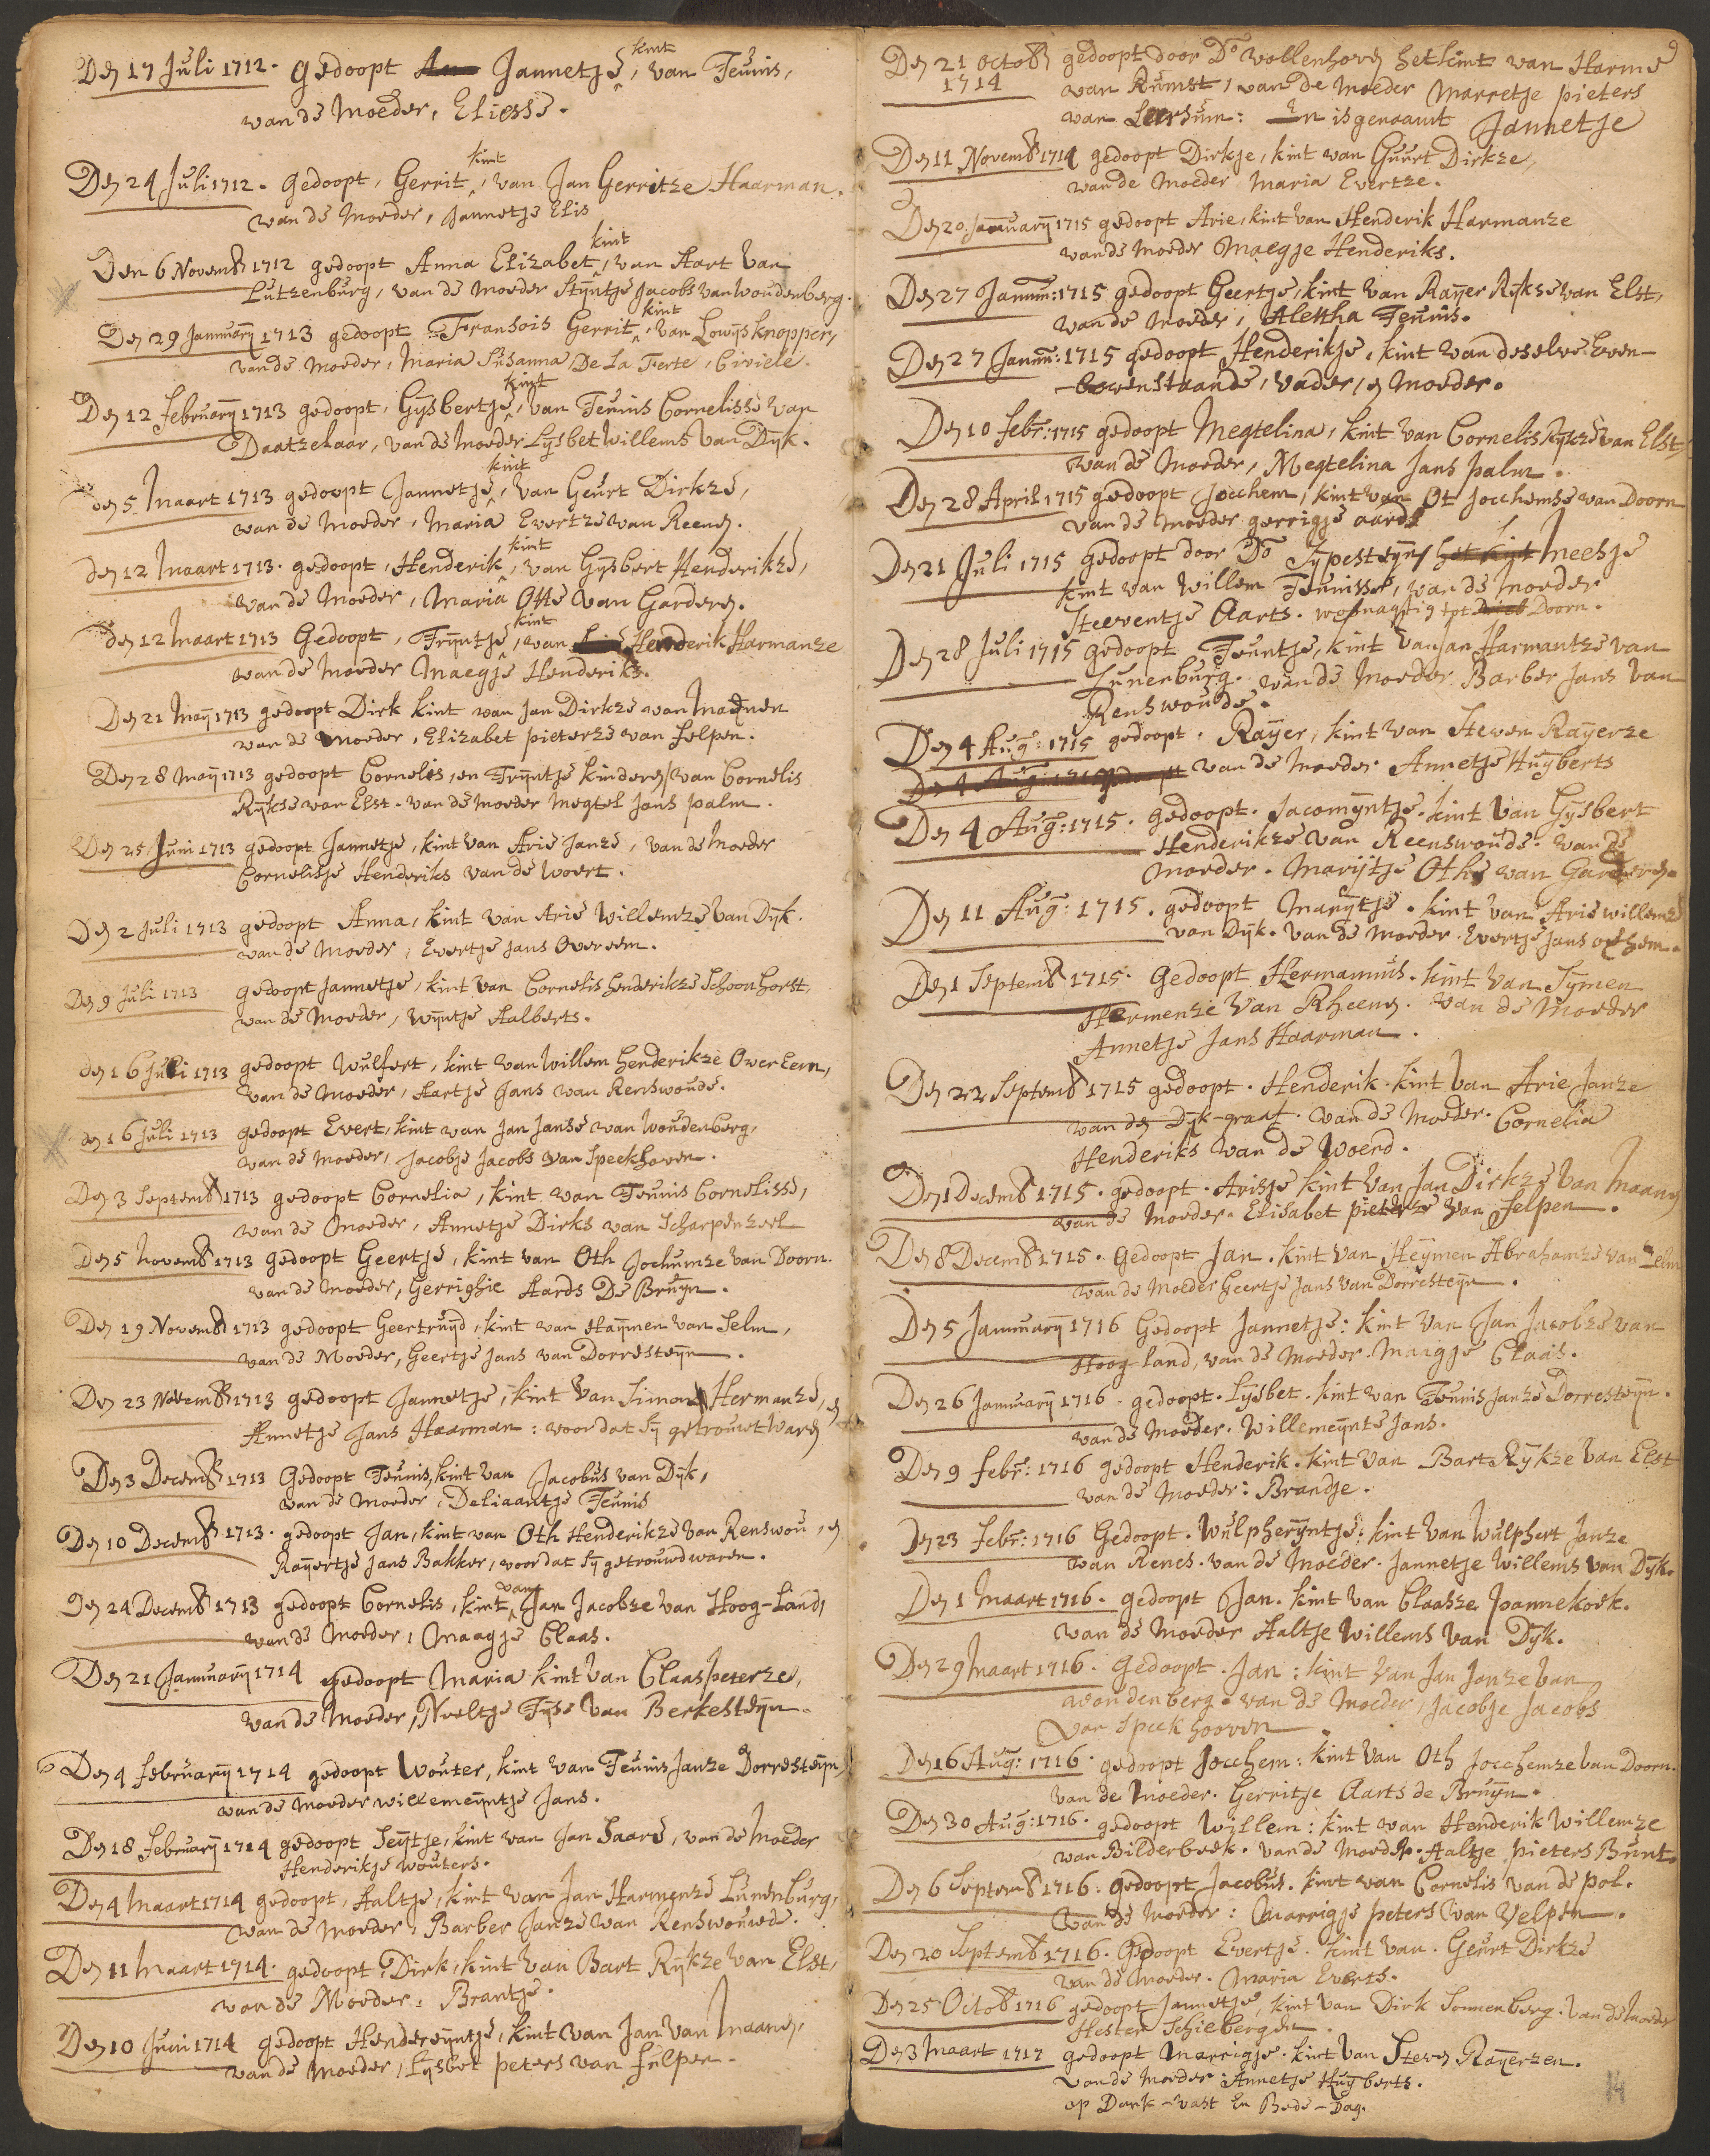 Den 17 Juli 1712. gedoopt Jannetje, kint van Teunis,
van de Moeder, Eliesse.
Den 24 Juli 1712. gedoopt, Gerrit, kint van Jan Gerritze Haarman.
van de Moeder, Jannetje Elis
Den 6 Novemb 1712 gedoopt Anna Elizabet, kint van Aart van
Lutzenburg, van de Moeder Stÿntje Jacobs van Woudenberg.
Den 29 Januarÿ 1713 gedoopt Fransois Gerrit, kint van Lowÿs knopper,
van de Moeder, Maria Susanna De La Ferte, Civiele.
Den 12 februarÿ 1713 gedoopt, Gÿsbertje, kint van Teunis Cornelisse van
Daatzelaar, van de Moeder Lÿsbet Willems van Dÿk.
den 5 Maart 1713 gedoopt Jannetje, kint van Geurt Dirkze,
van de Moeder, Maria Evertze van Reenen.
den 12 Maart 1713. gedoopt, Henderik, kint van Gÿsbert Henderikze,
van de Moeder, Maria Otte van Garderen.
den 12 Maart 1713 Gedoopt, Trÿntje, kint van Henderik Harmanze
van de Moeder Maegje Henderiks.
Den 21 Maÿ 1713 gedoopt Dirk kint van Jan Dirkze van Maenen
van de Moeder, Elizabet pieterze van felpen.
Den 28 Maÿ 1713 gedoopt Cornelis, en Trÿntje kinderen van Cornelis
Rÿkse van Elst. van de Moeder Megtel Jans palm.
Den 25 Juni 1713 gedoopt Jannetje, kint van Arie Janze, van de Moeder
Cornelisje Henderiks van de Woert.
Den 2 Juli 1713 gedoopt Anna, kint van Arie Willemze van Dÿk.
van de Moeder, Evertje Jans Overeem.
Den 9 Juli 1713 gedoopt Jannetje, kint van Cornelis henderikze Schoonhorst,
van de Moeder, Wÿntje Aalberts.
den 16 Juli 1713 gedoopt Wulfert, kint van Willem henderikze Over Eem,
van de Moeder, Aartje Jans van Renswoude.
den 16 Juli 1713 gedoopt Evert, kint van Jan Janse van Woudenberg,
van de Moeder, Jacobje Jacobs van Speekhoven.
Den 3 Septemb 1713 gedoopt Cornelia, kint van Teunis Cornelisse,
van de Moeder, Annetje Dirks van Scharpenzeel
Den 5 Novemb 1713 gedoopt Geertje, kint van Oth Jochumze van Doorn.
van de Moeder, Gerrighie Aards De Bruÿn.
Den 19 Novemb 1713 gedoopt Geertruÿd, kint van Haÿmen van Selm,
van de Moeder, Geertje Jans van Dorresteÿn.
Den 23 Novemb 1713 gedoopt Jannetje, kint van Simon Hermanze, en
Annetje Jans Haarman: voor dat sÿ getrouwt waren
Den 3 Decemb 1713 Gedoopt Teunis, kint van Jacobus van Dÿk,
van de Moeder, Deliaantje Teunis
Den 10 Decemb 1713. gedoopt Jan, kint van Oth Henderikze van Renswou, en
Raÿertje Jans Bakker, voor dat sÿ getrouwd waren.
Den 24 Decemb 1713 gedoopt Cornelis, kint van Jan Jacobze van Hoog-Land,
van de Moeder, Maagje Claas.
Den 21 Januarÿ 1714 gedoopt Maria kint van Claas peterze,
van de Moeder, Neeltje Tÿse van Berkesteÿn.
Den 4 februarÿ 1714 gedoopt Wouter, kint van Teunis Janze Dorresteÿn,
van de Moeder willemeÿntje Jans.
Den 18 februarÿ 1714 gedoopt Seÿtje, kint van Jan Saars, van de Moeder
Henderikje Wouters.
Den 4 Maart 1714 gedoopt, Aaltje, kint van Jan Harmenze Lunenburg,
van de Moeder, Barber Janze van Renswouwde.
Den 11 Maart 1714. gedoopt Dirk, kint van Bart Rÿkze van Elst,
van de Moeder, Brantje.
Den 10 Juni 1714 gedoopt Hendereÿntje, kint van Jan van Maanen,
van de Moeder, Lÿsbet peters van felpen.
9
Den 21 Octob gedoopt door Do wollenhoven het kint van Harme
1714 van Rumst, van de Moeder Marretje pieters
van Leersum: En is genaamt Jannetje
Den 11 Novemb 1714 gedoopt Dirkje, kint van Guurt Dirkze,
van de Moeder Maria Evertze.
Den 20 Januarÿ 1715 gedoopt Arie, kint van Henderik Harmanze
van de Moeder Maegje Henderiks.
Den 27 Januu: 1715 gedoopt Geertje, kint van Raÿer Rÿkse van Elst,
van de Moeder, Alettha Teunis.
Den 27 Januu: 1715 gedoopt Henderikje, kint van deselve Even-
bovenstaande, vader, en Moeder.
Den 10 febr: 1715 gedoopt Megtelina, kint van Cornelis Rÿkze van Elst,
van de Moeder, Megtelina Jans palm.
Den 28 April 1715 gedoopt Jocchem, kint van Ot Jocchemse van Doorn
van de Moeder gerrigje aards
Den 21 Juli 1715 gedoopt door Do Sÿpesteÿn het kint Meesje
kint van Willem Teunisse, van de Moeder
Steeventje Aarts. woonagtig tot Doorn.
Den 28 Juli 1715 gedoopt Teuntje, kint van Jan Harmantze van
Lunenburg. van de Moeder Barber Jans van
Renswoude.
Den 4 Aug: 1715 gedoopt. Raÿer, kint van Steven Raÿerze
van de Moeder Annetje Huÿberts
Den 4 Aug: 1715. gedoopt. Jacomÿntje. kint van Gÿsbert
Henderikze van Reenswoude. van de
Moeder. Marijtje Othe van Garderen.
Den 11 Aug: 1715. gedoopt Marÿtje. kint van Arie willemze
van Dÿk. van de Moeder Evertje Jans
Den 1 Septemb 1715. Gedoopt Hermannus. kint van Sÿmen
Hermenze van Rheenen. van de Moeder
Annetje Jans Haarman.
Den 22 Septemb 1715 gedoopt. Henderik. kint van Arie Janze
van den Dÿk-graaf. van de Moeder. Cornelia
Henderiks van de Woerd.
Den 1 Decemb 1715. gedoopt. Arisje kint van Jan Dirkze van Maanen
van de Moeder. Elisabet pieterze van felpen.
Den 8 Decemb 1715. Gedoopt Jan. kint van Heÿmen Abrahamze van Selm
van de Moeder Geertje Jans van Dorresteÿn.
Den 5 Januuarÿ 1716 Gedoopt Jannetje: kint van Jan Jacobze van
Hoog land, van de Moeder. Maagje Claas.
Den 26 Januuarÿ 1716. gedoopt. Lÿsbet. kint van Teunis Janze Dorresteÿn.
van de Moeder. Willemeÿnte Jans.
Den 9 febr: 1716 gedoopt Henderik. kint van Bart Rÿkze van Elst
van de Moeder: Brandje.
Den 23 febr: 1716 Gedoopt. Wulpherÿntje: kint van Wulphert Janze
van Renes. van de Moeder. Jannetje Willems van Dÿk.
Den 1 Maart 1716. gedoopt Jan. kint van Claasze pannekoek.
van de Moeder Aaltje Willems van Dÿk.
Den 29 Maart 1716. Gedoopt. Jan: kint van Jan Janze van
woudenberg. van de Moeder, Jacobje Jacobs
van Speekhooven.
Den 16 Aug: 1716. gedoopt Jocchem: kint van Oth Jocchemze van Doorn.
van de Moeder. Gerritje Aarts de Bruÿn.
Den 30 Aug: 1716. gedoopt Willem: kint van Henderik Willemze
van Bilderbeek. van de Moeder. Aaltje pieters Bunt.
Den 6 Septemb 1716: gedoopt Jacobus. kint van Cornelis van de pol.
van de Moeder: Marrigje peters van Velpen.
Den 20 Septemb 1716. Gedoopt Evertje. kint van. Geurt Dirkze
van de Moeder. Maria Everts.
Den 25 Octob 1716 gedoopt Jannetje, kint van Dirk Sonnenberg. van de Moeder
Hester Schiebergen.
Den 3 Maart 1717 gedoopt Marrigje. kint van Steven Raÿerzen.
van de Moeder: Annetje Huÿberts.
op Dank-vast En Bede-Dag.
14